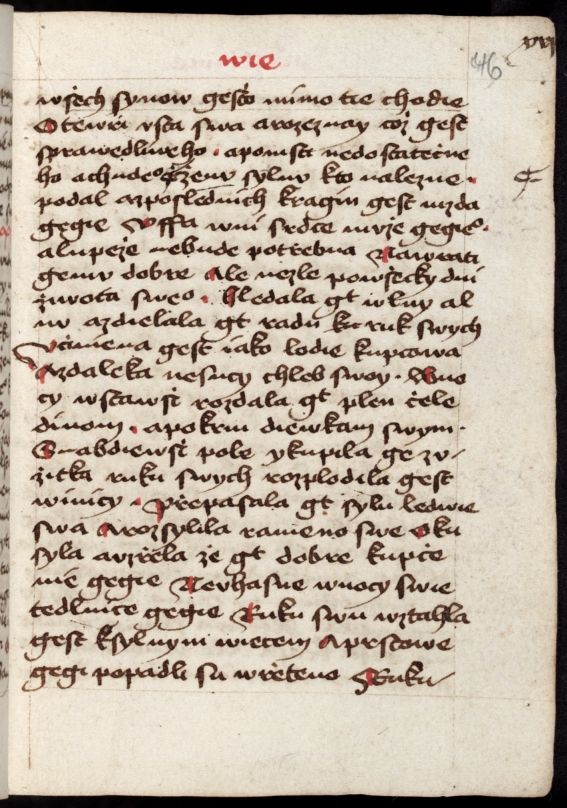 wie
46
wssech synow gesto mimo tie chodie
Otewři vsta swa a rozeznay coz gest
sprawedliweho · a pomsti nedostatečne
ho a chudeº Ženu sylnu kto nalezne ·
podal a z poslednich kragin gest mzda
gegie Uffa w ni srdce muże gegieº ·
a lupeże nebude potřebna Nawrati
gemu dobre Ale nezle po wssecky dni
żiwota sweº · Hledala gt wlny a l
nu a zdielala gt radu ku ruk swych
Učinena gest iako lodie kupcowa
A zdaleka nesucy chleb swoy · W no
cy wstawssi rozdala gt plen čele
dinom · a pokrm diewkam swym ·
Snabdiewssi pole y kupila ge z v-
żitka ruku swych rozplodila gest
winicy · Přepasala gt sylu ledwie
swa A rozsylila rameno swe Oku
syla a vzřela ze gt dobre kupče
nie gegie Neuhasne w nocy swie
tedlnice gegie Ruku swu wztahla
gest k sylnym wiecem A prstowe
gegi popadli su wřeteno Ruku